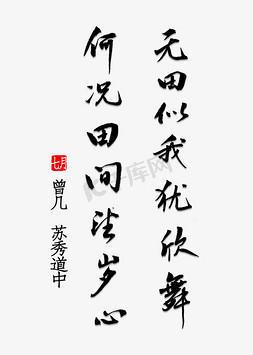 无田似我犹欣舞
何况田间望岁心
七月
曾几 苏秀道中